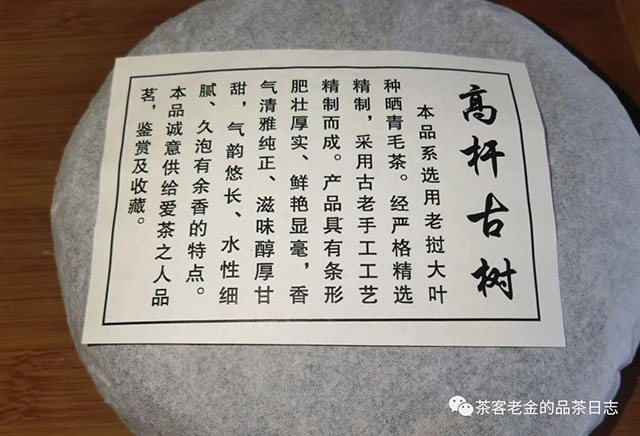 高杆古树
本品系选用老挝大叶
种晒青毛茶。经严格精选
精制，采用古老手工工艺
精制而成。产品具有条形
肥壮厚实、鲜艳显毫，香
气清雅纯正、滋味醇厚甘
甜，气韵悠长、水性细
腻、久泡有余香的特点。
本品诚意供给爱茶之人品
茗，鉴赏及收藏。
茶客老金的品茶日志